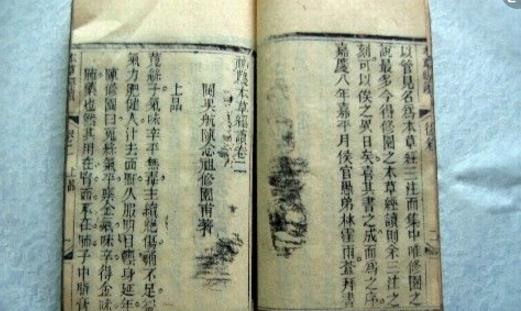 以管見名為本草經三注而集中唯修園之
說最多今得修園之本草經讀則余三注之
刻可以俟之異日矣喜其書之成而為之序
嘉慶八年嘉平月侯官愚弟林拜書
神農本草經讀卷二
閩吳航陳念祖修園甫著
上品
菟絲子氣味辛平無毒主續絕傷補不足益
氣力肥健人汁去面䵟久服明目輕身延年
陳修園曰菟絲氣平稟金氣味辛得金味
肺藥也然其用在腎而不在肺子中脂膏
本草經讀 卷二 上品 一